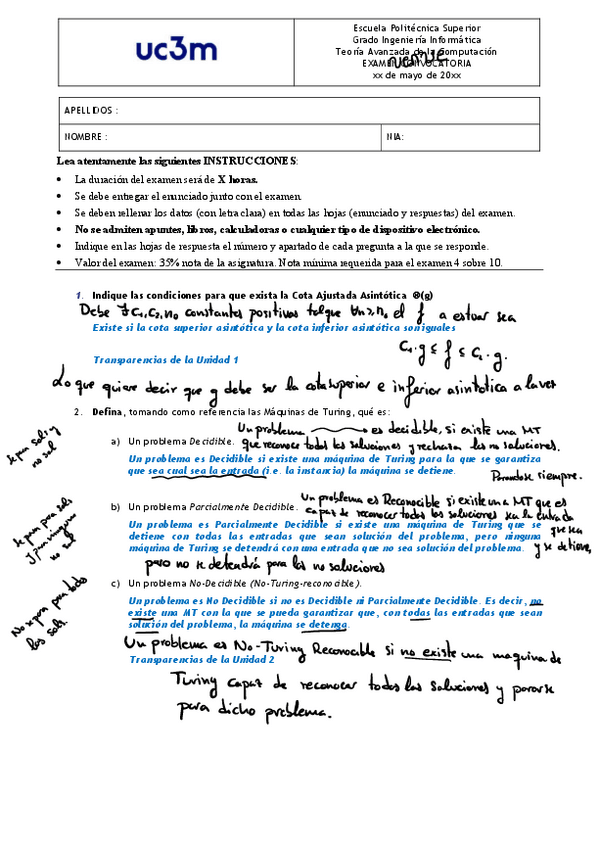 uc3m
Escuela Politécnica Superior
Grado Ingeniería Informática
Teoría Avanzada de la Computación
EXAMEN CONVOCATORIA
xx de mayo de 20xx
APELLIDOS :
NOMBRE :
NIA:
Lea atentamente las siguientes INSTRUCCIONES:
• La duración del examen será de X horas.
• Se debe entregar el enunciado junto con el examen.
• Se deben rellenar los datos (con letra clara) en todas las hojas (enunciado y respuestas) del examen.
• No se admiten apuntes, libros, calculadoras o cualquier tipo de dispositivo electrónico.
• Indique en las hojas de respuesta el número y apartado de cada pregunta a la que se responde.
• Valor del examen: 35% nota de la asignatura. Nota mínima requerida para el examen 4 sobre 10.
1. Indique las condiciones para que exista la Cota Ajustada Asintótica Θ(g)
Debe ∃ C₁, C₂, n₀ constantes positivas tal que ∀n≥n₀ el f a estuar sea
Existe si la cota superior asintótica y la cota inferior asintótica son iguales
C₁·g ≤ f ≤ C₂·g.
Transparencias de la Unidad 1
Lo que quiere decir que g debe ser la cota superior e inferior asintótica a la vez
2. Defina, tomando como referencia las Máquinas de Turing, qué es:
Un problema es decidible, si existe una MT
a) Un problema Decidible. que reconoce todas las soluciones y rechaza las no soluciones.
Se para sol y
no sol
Un problema es Decidible si existe una máquina de Turing para la que se garantiza
que sea cual sea la entrada (i.e. la instancia) la máquina se detiene.
Parandose siempre.
Un problema es Reconocible si existe una MT que es
b) Un problema Parcialmente Decidible. capaz de reconocer todas las soluciones sea la entrada
que sea
Se para para sols
y para ninguna
no sol
Un problema es Parcialmente Decidible si existe una máquina de Turing que se
detiene con todas las entradas que sean solución del problema, pero ninguna
máquina de Turing se detendrá con una entrada que no sea solución del problema.
y se detiene,
pero no se detendrá para las no soluciones
c) Un problema No-Decidible (No-Turing-reconocible).
No se para para todas
las sols.
Un problema es No Decidible si no es Decidible ni Parcialmente Decidible. Es decir, no
existe una MT con la que se pueda garantizar que, con todas las entradas que sean
solución del problema, la máquina se detenga.
Un problema es No-Turing Reconocible si no existe una maquina de
Transparencias de la Unidad 2
Turing capaz de reconocer todas las soluciones y pararse
para dicho problema.